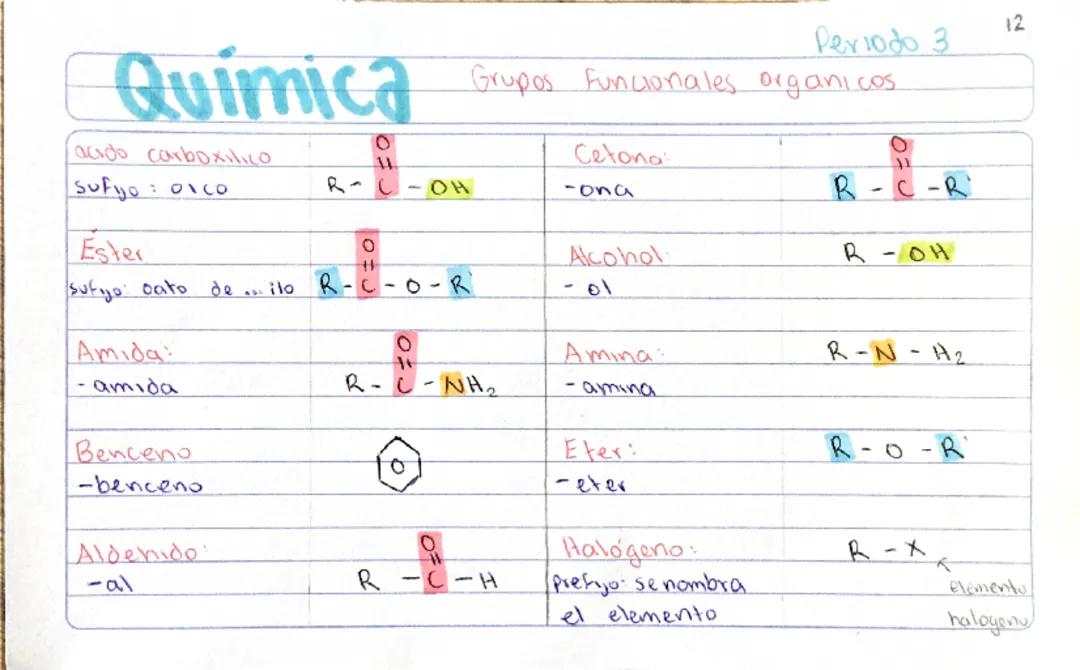 12
Periodo 3
Química Grupos Funcionales organicos
acido carboxilico
sufijo: oico
O
R - C - OH
Cetona:
-ona
O
R - C - R'
Éster
sufijo: oato de ... ilo
O
R - C - O - R'
Alcohol:
- ol
R - OH
Amida:
- amida
O
R - C - NH₂
Amina:
- amina
R - N - H₂
Benceno
-benceno
Eter:
- eter
R - O - R'
Aldehido:
-al
O
R - C - H
Halógeno:
prefijo: se nombra
el elemento
R - X
Elemento
halogeno